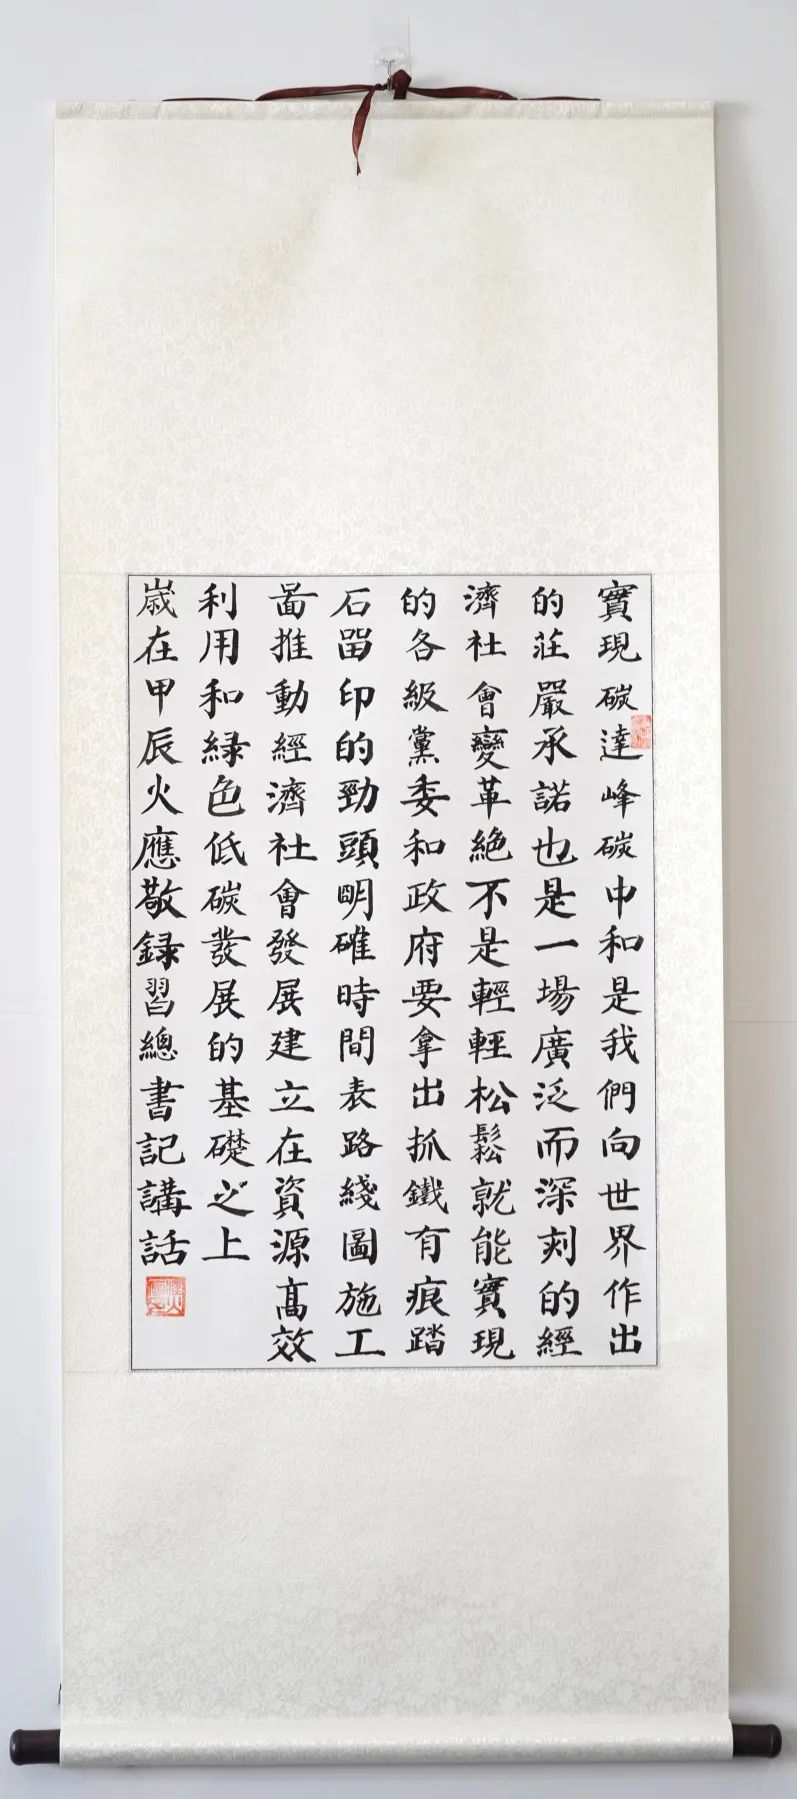 實現碳達峰碳中和是我們向世界作出
的莊嚴承諾也是一場廣泛而深刻的經
濟社會變革絕不是輕輕松鬆就能實現
的各級黨委和政府要拿出抓鐵有痕踏
石畱印的勁頭明確時間表路綫圖施工
啚推動經濟社會發展建立在資源高效
利用和緑色低碳發展的基礎之上
歲在甲辰火應敬録習總書記講話